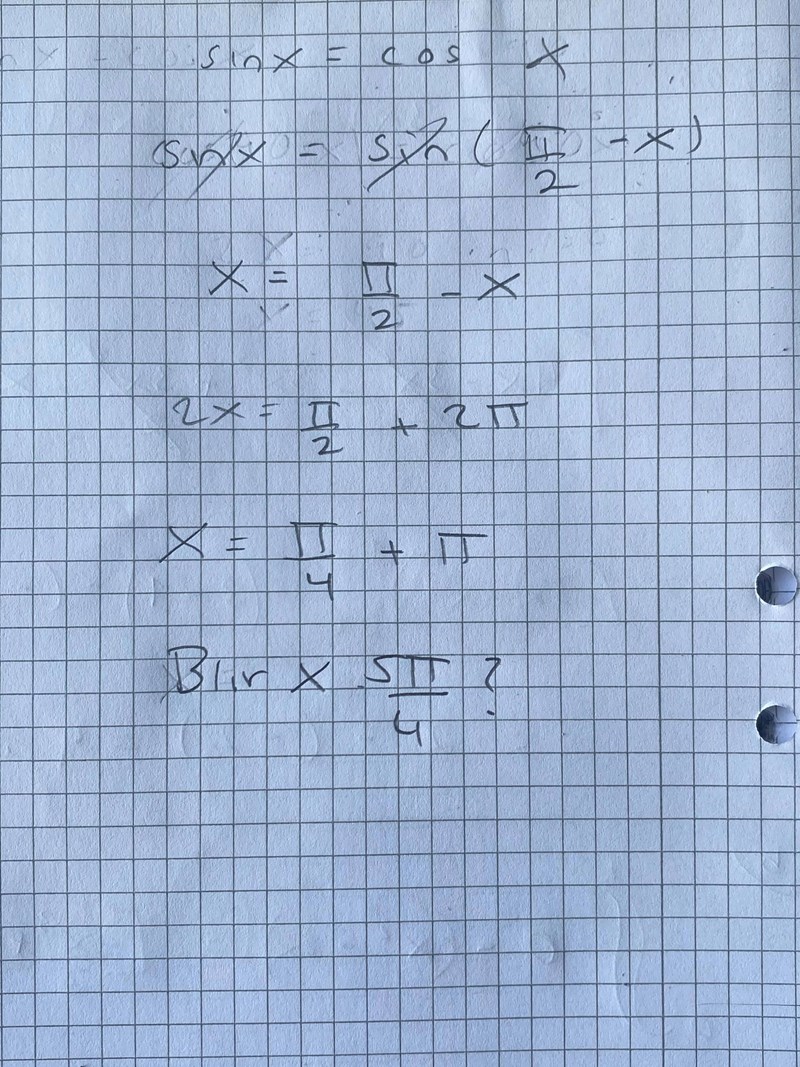 sin x = cos x
sin x = sin ( π/2 - x )
x = π/2 - x
2x = π/2 + 2π
x = π/4 + π
Blir x 5π/4 ?